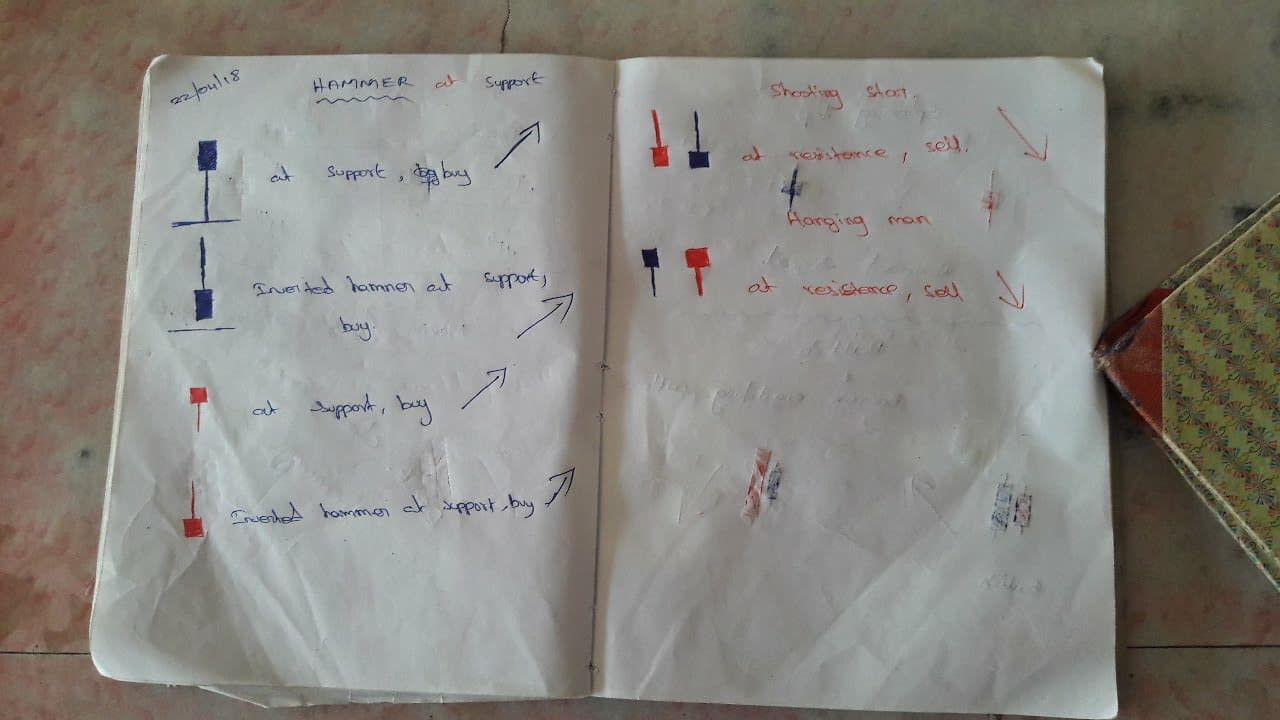 22/04/18
HAMMER at support
at support, buy
Inverted hammer at support,
buy.
at support, buy
Inverted hammer at support, buy
Shooting star.
at resistance, sell.
Hanging man
at resistance, sell